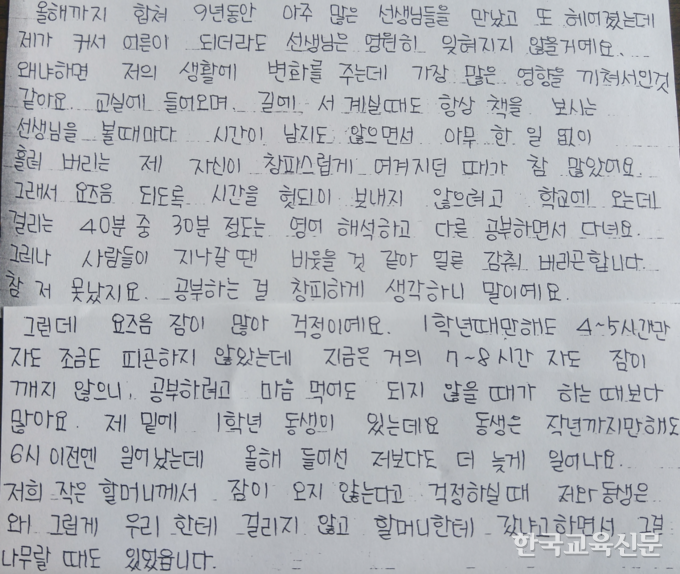 올해까지 합쳐 9년동안 아주 많은 선생님들을 만났고 또 헤어졌는데
제가 커서 어른이 되더라도 선생님은 영원히 잊혀지지 않을거에요.
왜냐하면 저의 생활에 변화를 주는데 가장 많은 영향을 끼쳐서인것
같아요. 교실에 들어오며, 길에 서 계실때도 항상 책을 보시는
선생님을 볼때마다 시간이 남지도 않으면서 아무 한 일 없이
흘려 버리는 제 자신이 창피스럽게 여겨지던 때가 참 많았어요.
그래서 요즈음 되도록 시간을 헛되이 보내지 않으려고 학교에 오는데
걸리는 40분 중 30분 정도는 영어 해석하고 다른 공부하면서 다녀요.
그러나 사람들이 지나갈 땐 비웃을 것 같아 얼른 감춰 버리곤합니다.
참 저 못났지요. 공부하는 걸 창피하게 생각하니 말이에요.
그런데 요즈음 잠이 많아 걱정이에요. 1학년때만해도 4~5시간만
자도 조금도 피곤하지 않았는데 지금은 거의 7~8시간 자도 잠이
깨지 않으니, 공부하려고 마음 먹어도 되지 않을 때가 하는 때보다
많아요. 제 밑에 1학년 동생이 있는데요 동생은 작년까지만해도
6시 이전엔 일어났는데 올해 들어선 저보다도 더 늦게 일어나요.
저희 작은 할머니께서 잠이 오지 않는다고 걱정하실 때 저와 동생은
왜 그럼게 우리 한테 걸리지 않고 할머니한테 갔냐고하면서 그걸
나무랄 때도 있었읍니다.
한국교육신문